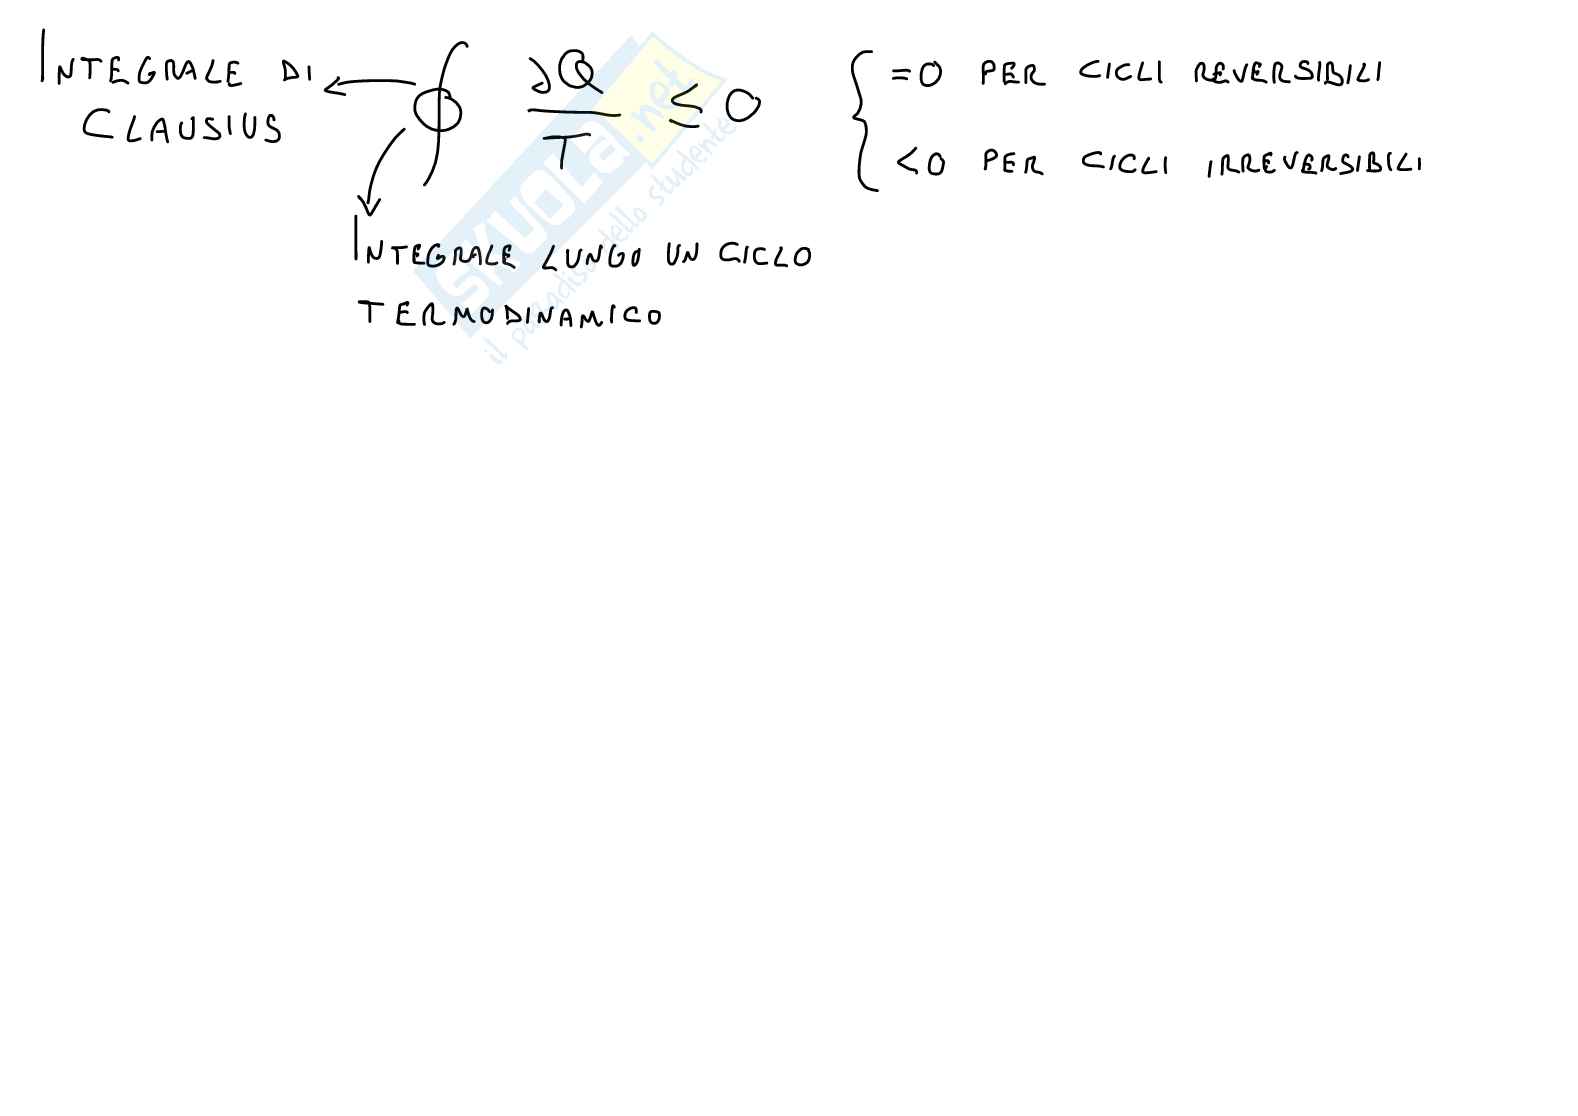 INTEGRALE DI
CLAUSIUS
∮ ∂Q/T ≤ 0
{ =0 PER CICLI REVERSIBILI
<0 PER CICLI IRREVERSIBILI
INTEGRALE LUNGO UN CICLO
TERMODINAMICO
SKUOLA.net
il paradiso dello studente